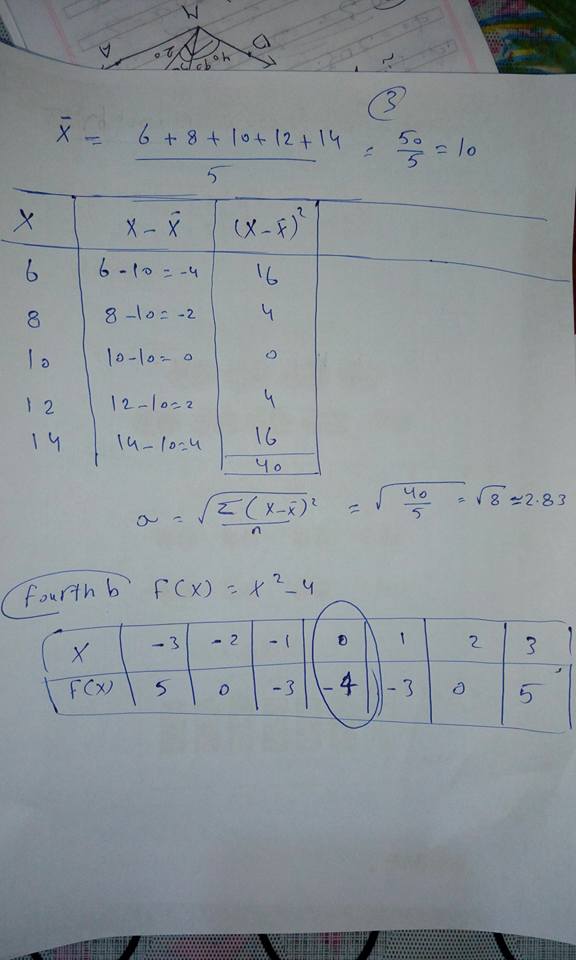 M
A D
20 40
90
3
X̄ = 6 + 8 + 10 + 12 + 14 / 5 = 50/5 = 10
X X - X̄ (X - X̄)²
6 6 - 10 = -4 16
8 8 - 10 = -2 4
10 10 - 10 = 0 0
12 12 - 10 = 2 4
14 14 - 10 = 4 16
40
σ = √Σ(X - X̄)²/n = √40/5 = √8 ≃ 2.83
Fourth b F(X) = X² - 4
X -3 -2 -1 0 1 2 3
F(X) 5 0 -3 -4 -3 0 5